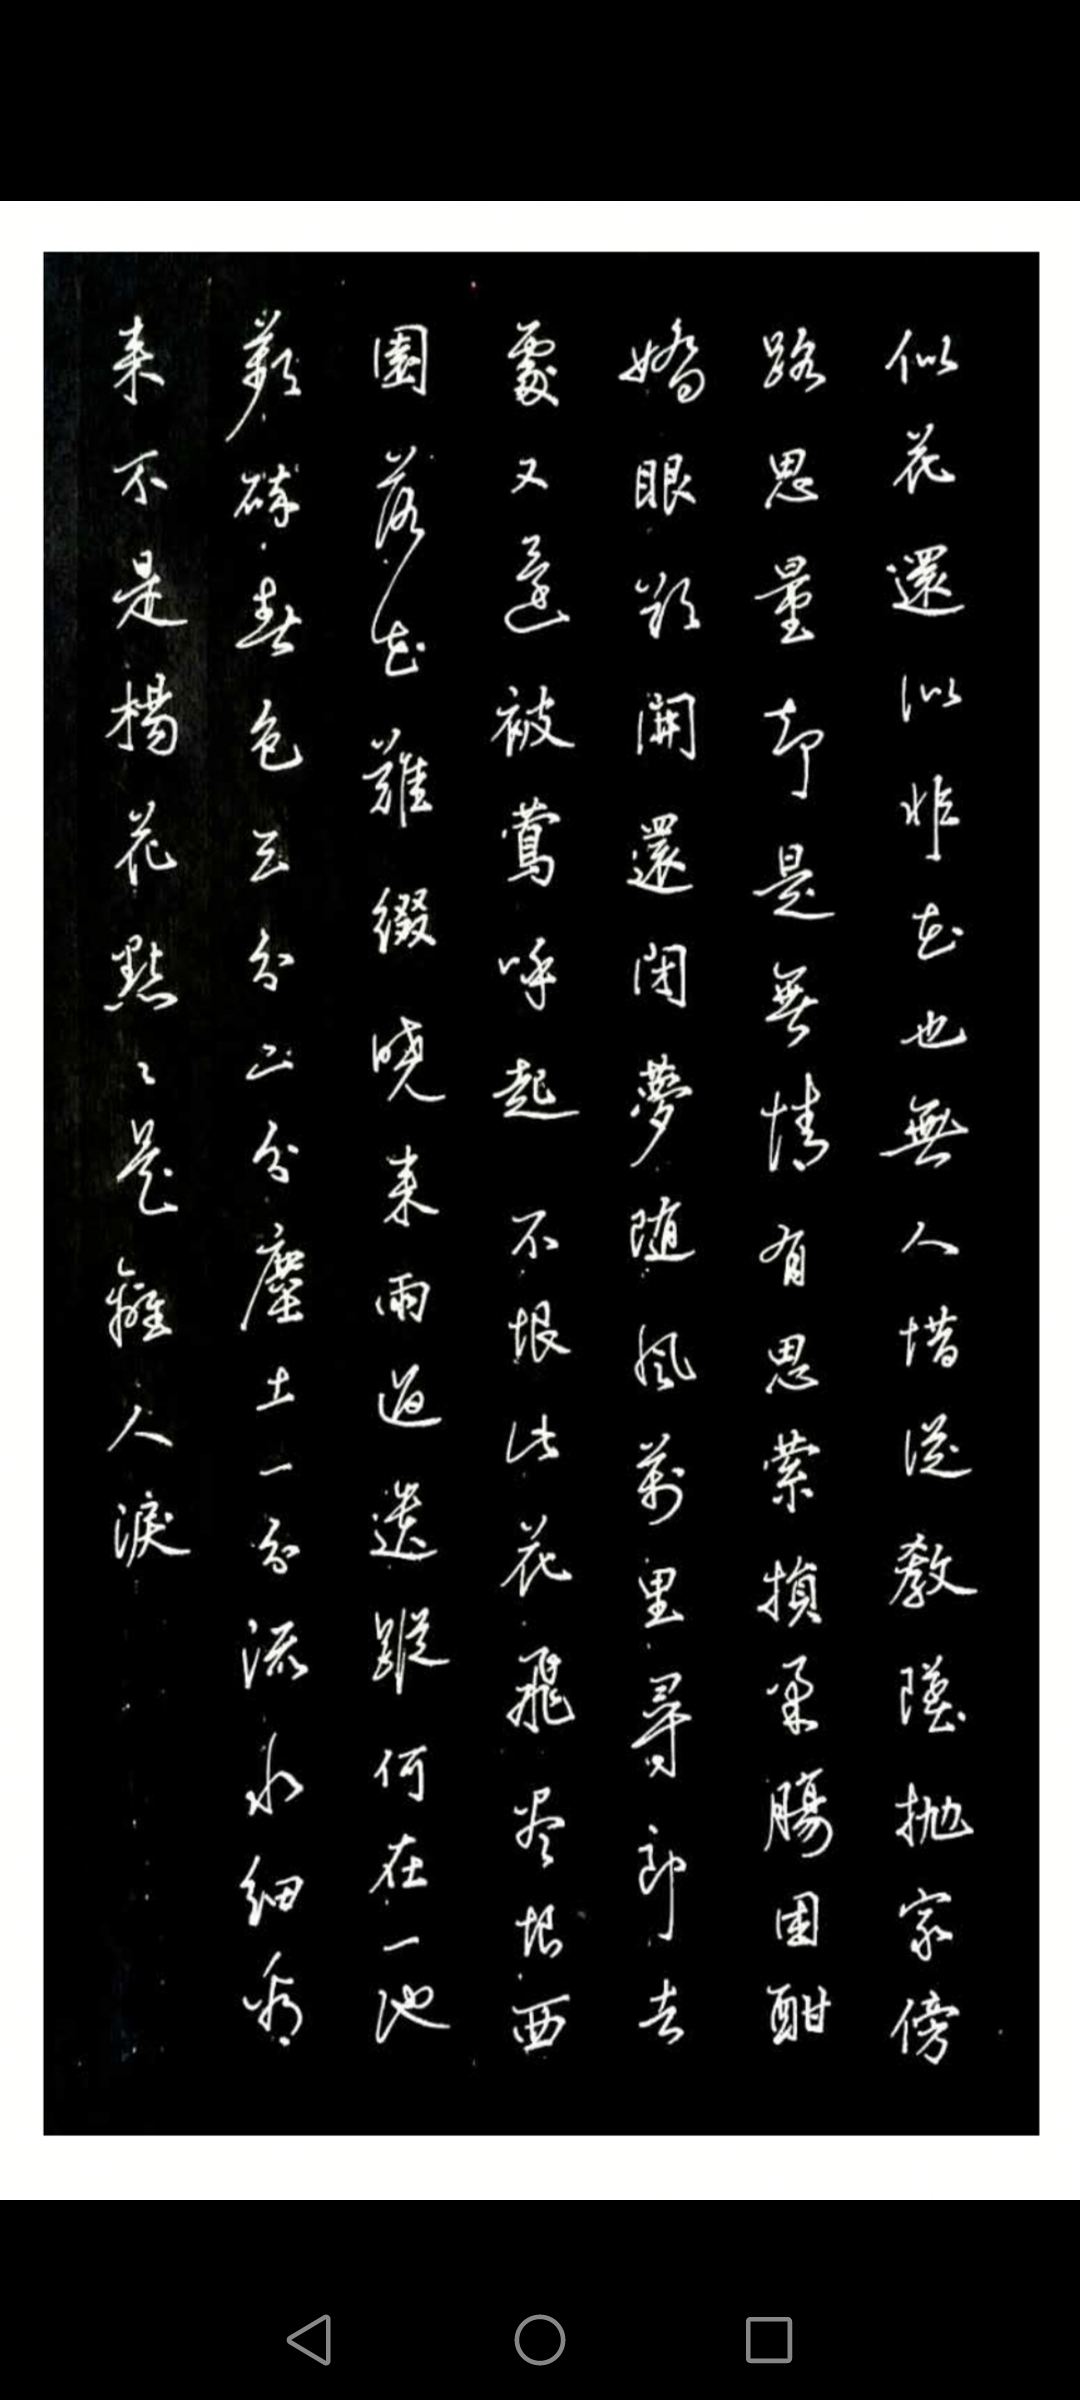 似花還似非花也無人惜從教墜抛家傍
路思量却是無情有思縈損柔腸困酣
嬌眼欲開還閉夢随風萬里尋郎去
處又還被鶯呼起不恨此花飛尽恨西
園落花難綴曉来雨過遺蹤何在一池
萍碎春色三分二分塵土一分流水細看
来不是楊花點〻是離人淚